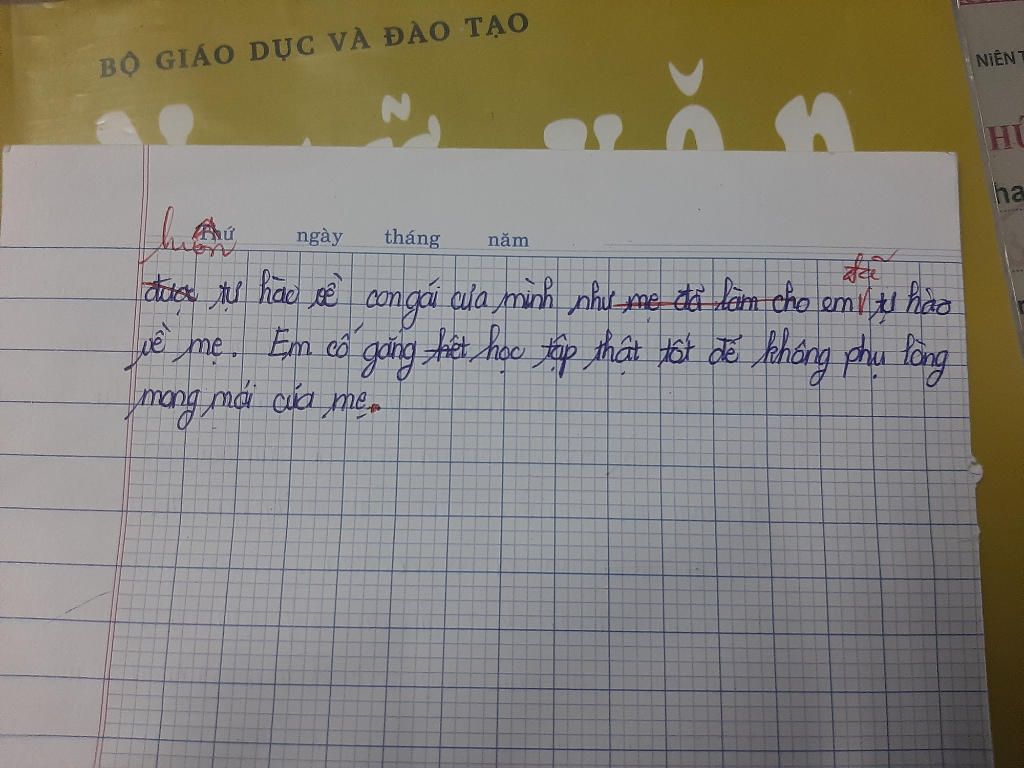 BỘ GIÁO DỤC VÀ ĐÀO TẠO
NIÊN T
HÚ
ha
Thứ ngày tháng năm
luôn
đã
được tự hào về con gái của mình như mẹ đã làm cho em tự hào
về mẹ. Em cố gắng hết học tập thật tốt để không phụ lòng
mong mỏi của mẹ.